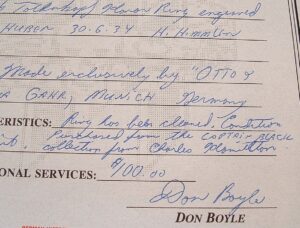 Totenkopf Honor Ring engraved
HUBER 30.6.34 H. Himmler
Made exclusively by "OTTO &
GAHR, MUNICH Germany
ERISTICS: Ring has been cleaned. Condition
Purchased from the CAPTAIN BLACK
collection from Charles Hamilton
ONAL SERVICES: $100.00
Don Boyle
DON BOYLE